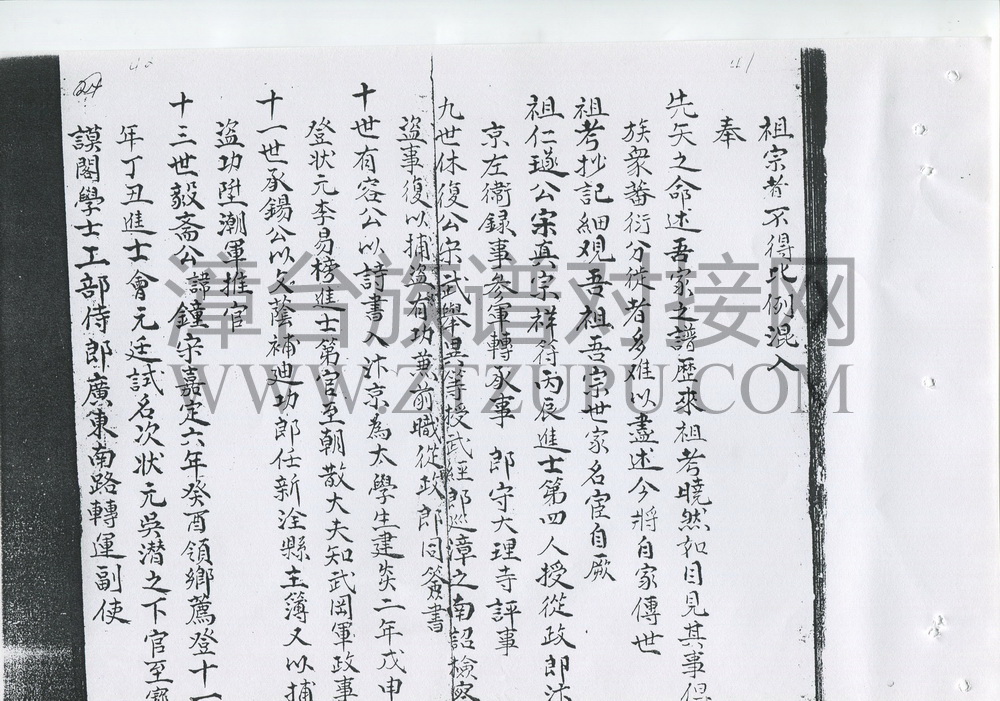 41
祖宗者不得比例混入
奉
先矢之命述吾家之譜歷來祖考曉然如目見其事但
族衆蕃衍分徙者多难以盡述今將自家傳世
祖考抄記細观吾祖吾宗世家名宦自厥
祖仁遂公宋真宗祥符丙辰進士第四人授從政郎汴
京左衛録事參軍轉承事郎守大理寺評事
九世休復公宋武舉異等授武経郎巡漳之南詔檢察
盜事復以捕盜有功兼前職從政郎同簽書
十世有容公以詩書入汴京為太學生建炎二年戊申
登状元李易榜進士第官至朝散大夫知武岡軍政事
十一世承錫公以父蔭補迪功郎任新淦縣主簿又以捕
盜功陞潮軍推官
十三世毅齋公諱鐘宋嘉定六年癸酉領鄉薦登十一
年丁丑進士會元廷試名次状元吳潛之下官至寶
謨閣學士工部侍郎廣東南路轉運副使
漳台族谱对接网
WWW.ZTZUPU.COM